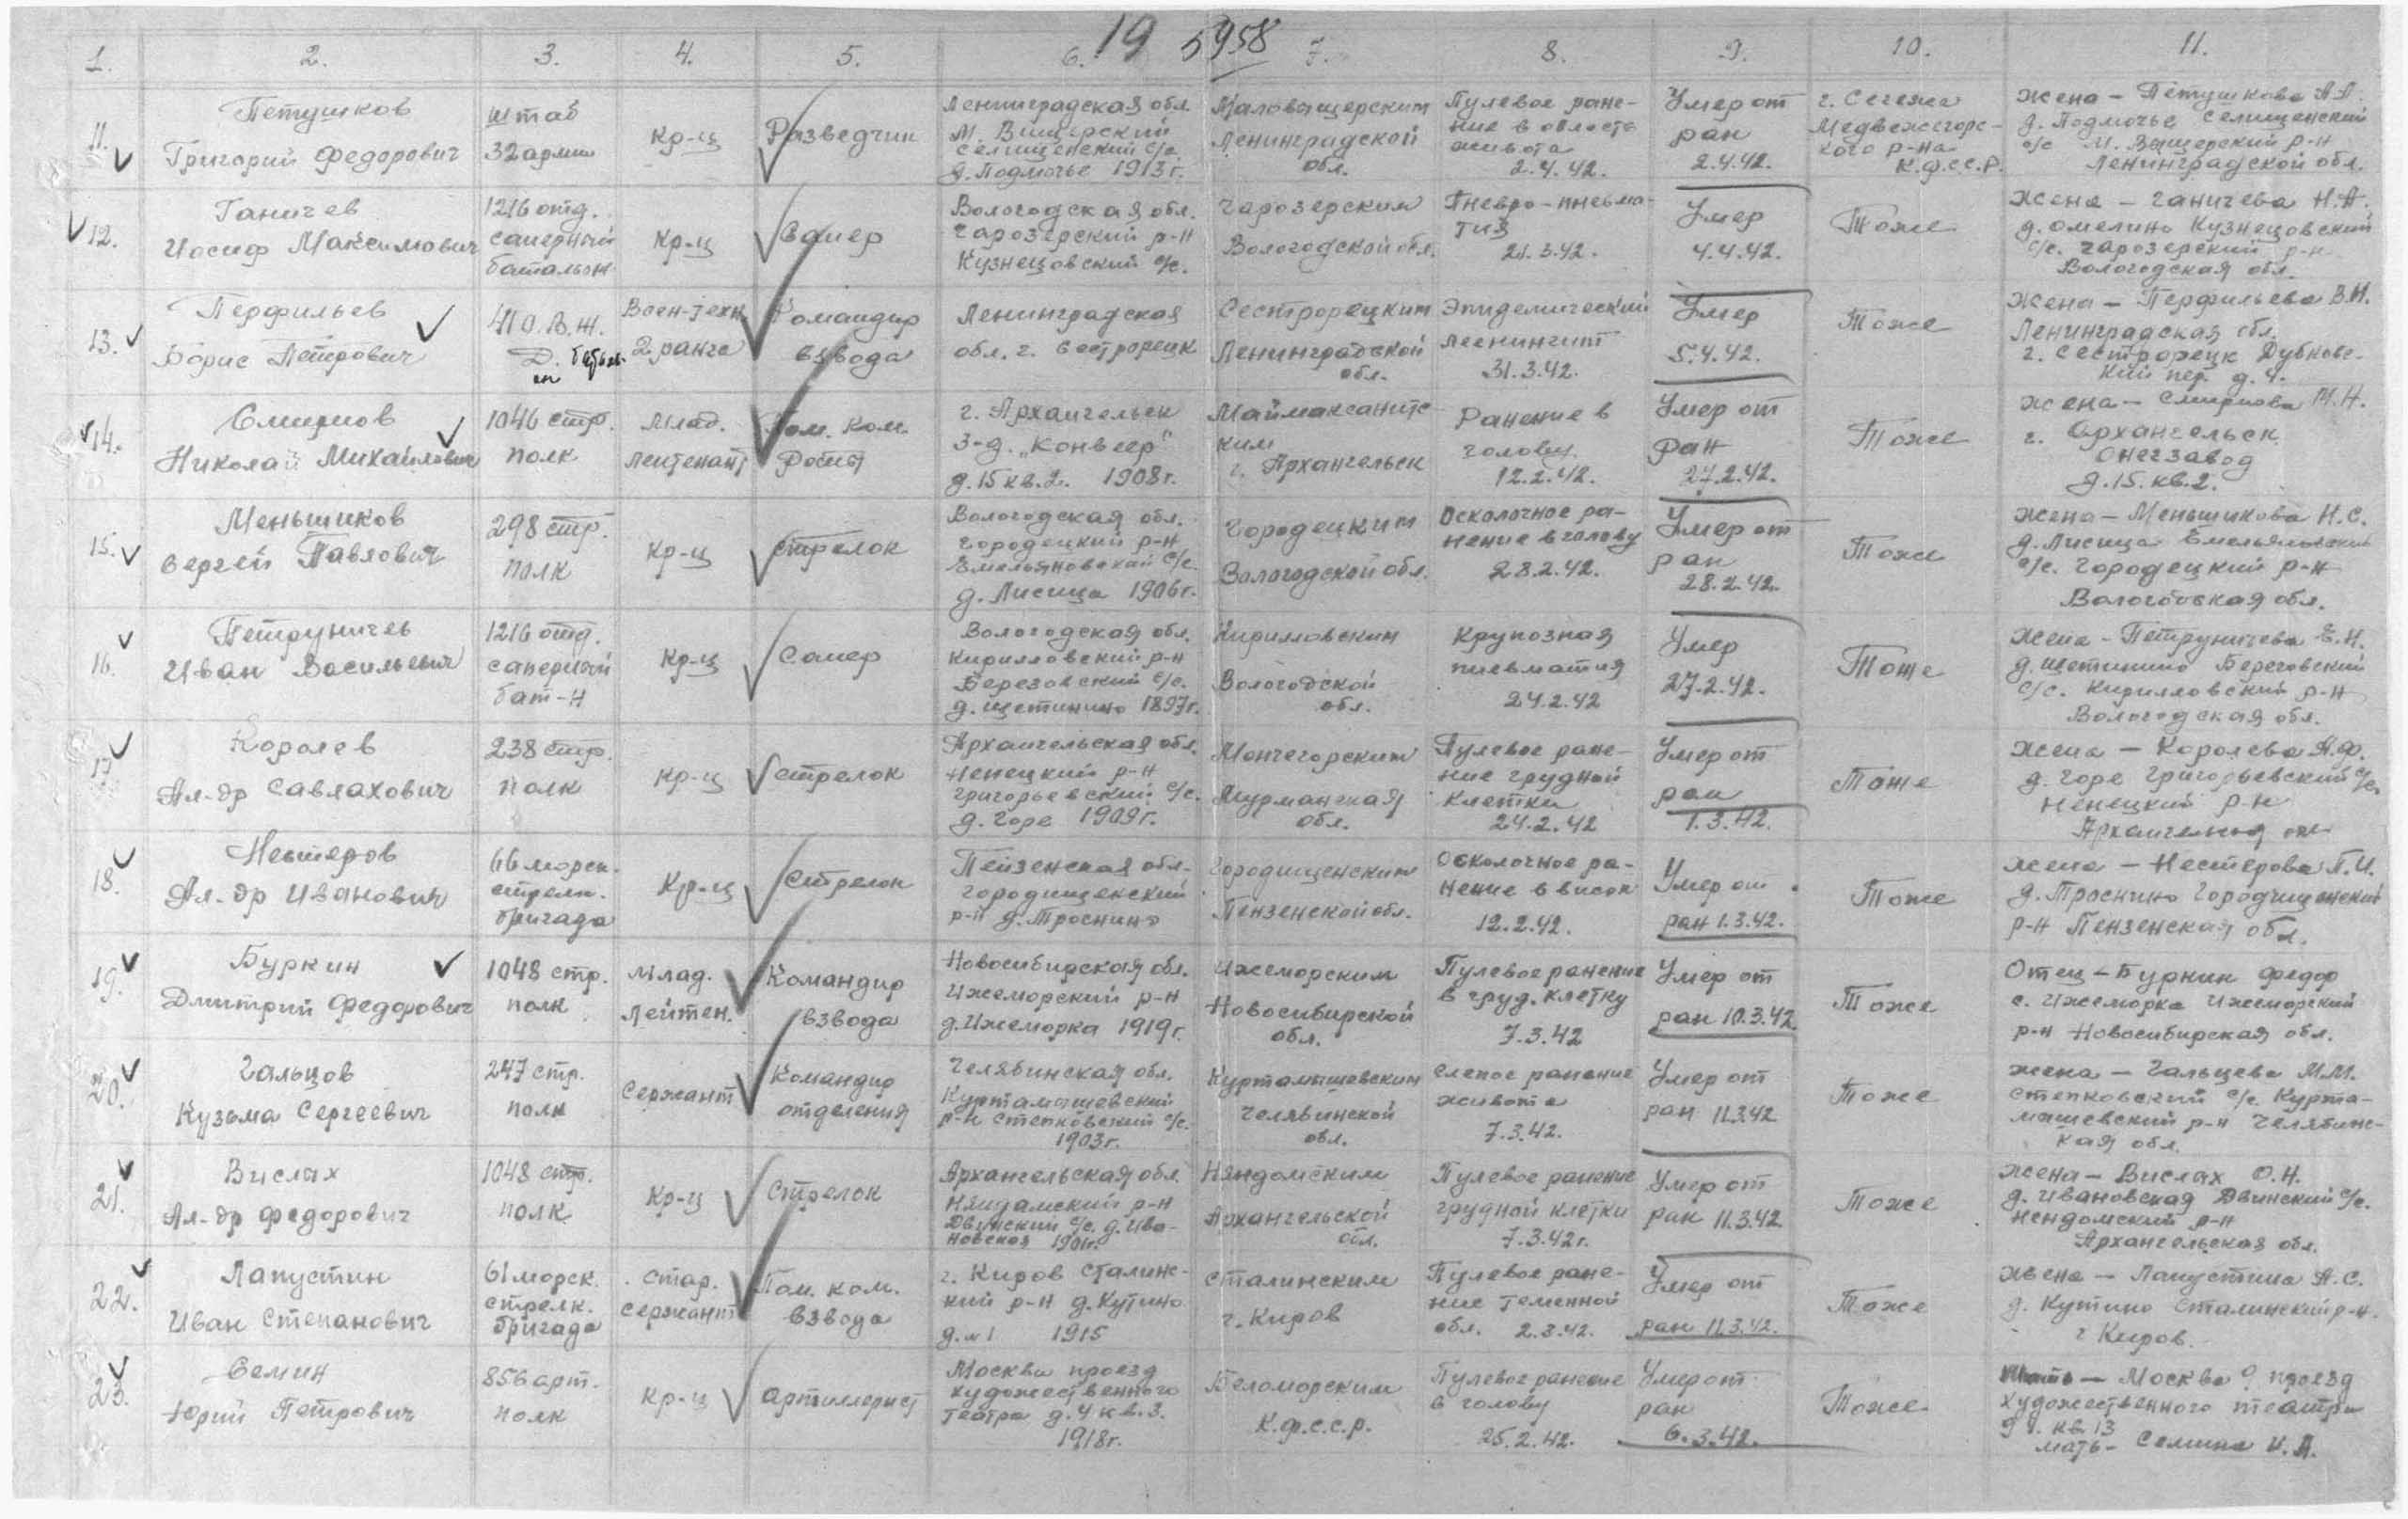 19 5958
1. 2. 3. 4. 5. 6. 7. 8. 9. 10. 11.
11.
Петушков
Григорий Федорович
штаб
32 армии
Кр-ц
Разведчик
Ленинградская обл.
М. Вишерский
Селищенский с/с
д. Подмочье 1913 г.
Маловишерским
Ленинградской
обл.
Пулевое ране-
ние в область
живота
2.4.42.
Умер от
ран
2.4.42.
г. Сегежа
Медвежегорс-
кого р-на
К.Ф.С.С.Р.
Жена – Петушкова
д. Подмочье Селищенский
с/с М. Вишерский р-н
Ленинградской обл.
12.
Ганичев
Иосиф Максимович
1216 отд.
саперный
батальон
Кр-ц
Сапер
Вологодская обл.
Чарозерский р-н
Кузнецовский с/с.
Чарозерским
Вологодской обл.
Пневро-пневма-
тиз
21.3.42.
Умер
4.4.42.
Тоже
Жена – Ганичева Н.А.
д. Омелино Кузнецовский
с/с. Чарозерский р-н
Вологодская обл.
13.
Перфильев
Борис Петрович
41 О.В.Ж.
Д. батальон
Воен-техн.
2 ранга
Командир
взвода
Ленинградская
обл. г. Сестрорецк
Сестрорецким
Ленинградской
обл.
Эпидемический
менингит
31.3.42.
Умер
5.4.42.
Тоже
Жена – Перфильева В.И.
Ленинградская обл.
г. Сестрорецк Дубковс-
кий пер. д. 4.
14.
Смирнов
Николай Михайлович
1046 стр.
полк
Млад.
лейтенант
Пом. ком.
роты
г. Архангельск
з-д. „Конвеер"
д. 15 кв. 2. 1908 г.
Маймаксанитс-
ким
г. Архангельск
Ранение в
голову
12.2.42.
Умер от
ран
27.2.42.
Тоже
Жена – Смирнова М.Н.
г. Архангельск
Онегзавод
д. 15. кв. 2.
15.
Меньшиков
Сергей Павлович
298 стр.
полк
Кр-ц
Стрелок
Вологодская обл.
Городецкий р-н
Емельяновский с/с.
д. Лисица 1906 г.
Городецким
Вологодской обл.
Осколочное ра-
нение в голову
28.2.42.
Умер от
ран
28.2.42.
Тоже
Жена – Меньшикова Н.С.
д. Лисица Емельяновский
с/с. Городецкий р-н
Вологодская обл.
16.
Петруничев
Иван Васильевич
1216 отд.
саперный
бат-н
Кр-ц
Сапер
Вологодская обл.
Кирилловский р-н
Березовский с/с.
д. Щетинино 1897 г.
Кирилловским
Вологодской
обл.
Крупозная
пневматия
24.2.42
Умер
27.2.42.
Тоже
Жена – Петруничева Е.Н.
д. Щетинино Береговский
с/с. Кирилловский р-н
Вологодская обл.
17.
Королев
Ал-др Савлахович
238 стр.
полк
Кр-ц
Стрелок
Архангельская обл.
Ненецкий р-н
Григорьевский с/с.
д. Горе 1909 г.
Мончегорским
Мурманская
обл.
Пулевое ране-
ние грудной
клетки
24.2.42
Умер от
ран
1.3.42.
Тоже
Жена – Королева А.Ф.
д. Горе Григорьевский с/с.
Ненецкий р-н
18.
Нестеров
Ал-др Иванович
66 морск.
стрелк.
бригада
Кр-ц
Стрелок
Пензенская обл.
Городищенский
р-н д. Троснино
Городищенским
Пензенской обл.
Осколочное ра-
нение в висок
12.2.42.
Умер от
ран 1.3.42.
Тоже
Жена – Нестерова П.И.
д. Троснино Городищенский
р-н Пензенская обл.
19.
Буркин
Дмитрий Федорович
1048 стр.
полк
Млад.
Лейтен.
Командир
взвода
Новосибирская обл.
Ижеморский р-н
д. Ижеморка 1919 г.
Ижеморским
Новосибирской
обл.
Пулевое ранение
в груд. клетку
7.3.42
Умер от
ран 10.3.42.
Тоже
Отец – Буркин Федор
с. Ижеморка Ижеморский
р-н Новосибирская обл.
20.
Гальцов
Кузьма Сергеевич
247 стр.
полк
Сержант
Командир
отделения
Челябинская обл.
Куртамышевский
р-н Степковский с/с.
1903 г.
Куртамышевским
Челябинской
обл.
Слепое ранение
живота
7.3.42.
Умер от
ран 11.3.42
Тоже
Жена – Гальцева М.М.
Степковский с/с. Курта-
машевский р-н Челябинс-
кая обл.
21.
Вислах
Ал-др Федорович
1048 стр.
полк
Кр-ц
Стрелок
Архангельская обл.
Няндамский р-н
Двинский с/с. д. Ива-
новская 1901 г.
Няндомским
Архангельской
обл.
Пулевое ранение
грудной клетки
7.3.42 г.
Умер от
ран 11.3.42
Тоже
Жена – Вислах О.Н.
д. Ивановская Двинский с/с.
Нендомский р-н
Архангельская обл.
22.
Лапустин
Иван Степанович
61 морск.
стрелк.
бригада
Стар.
сержант
Пом. ком.
взвода
г. Киров Сталинс-
кий р-н д. Кутино
д. № 1 1915
Сталинским
г. Киров
Пулевое ране-
ние теменной
обл. 2.3.42.
Умер от
ран 11.3.42.
Тоже
Жена – Лапустина А.С.
д. Кутино Сталинский р-н.
г Киров.
23.
Семин
Юрий Петрович
856 арт.
полк
Кр-ц
Артиллерист
Москва проезд
Художественного
театра д. 4 кв. 3.
1918 г.
Беломорским
К.Ф.С.С.Р.
Пулевое ранение
в голову
25.2.42.
Умер от
ран
6.3.42.
Тоже
Мать – Москва проезд
Художественного театра
кв 13
мать – Семина